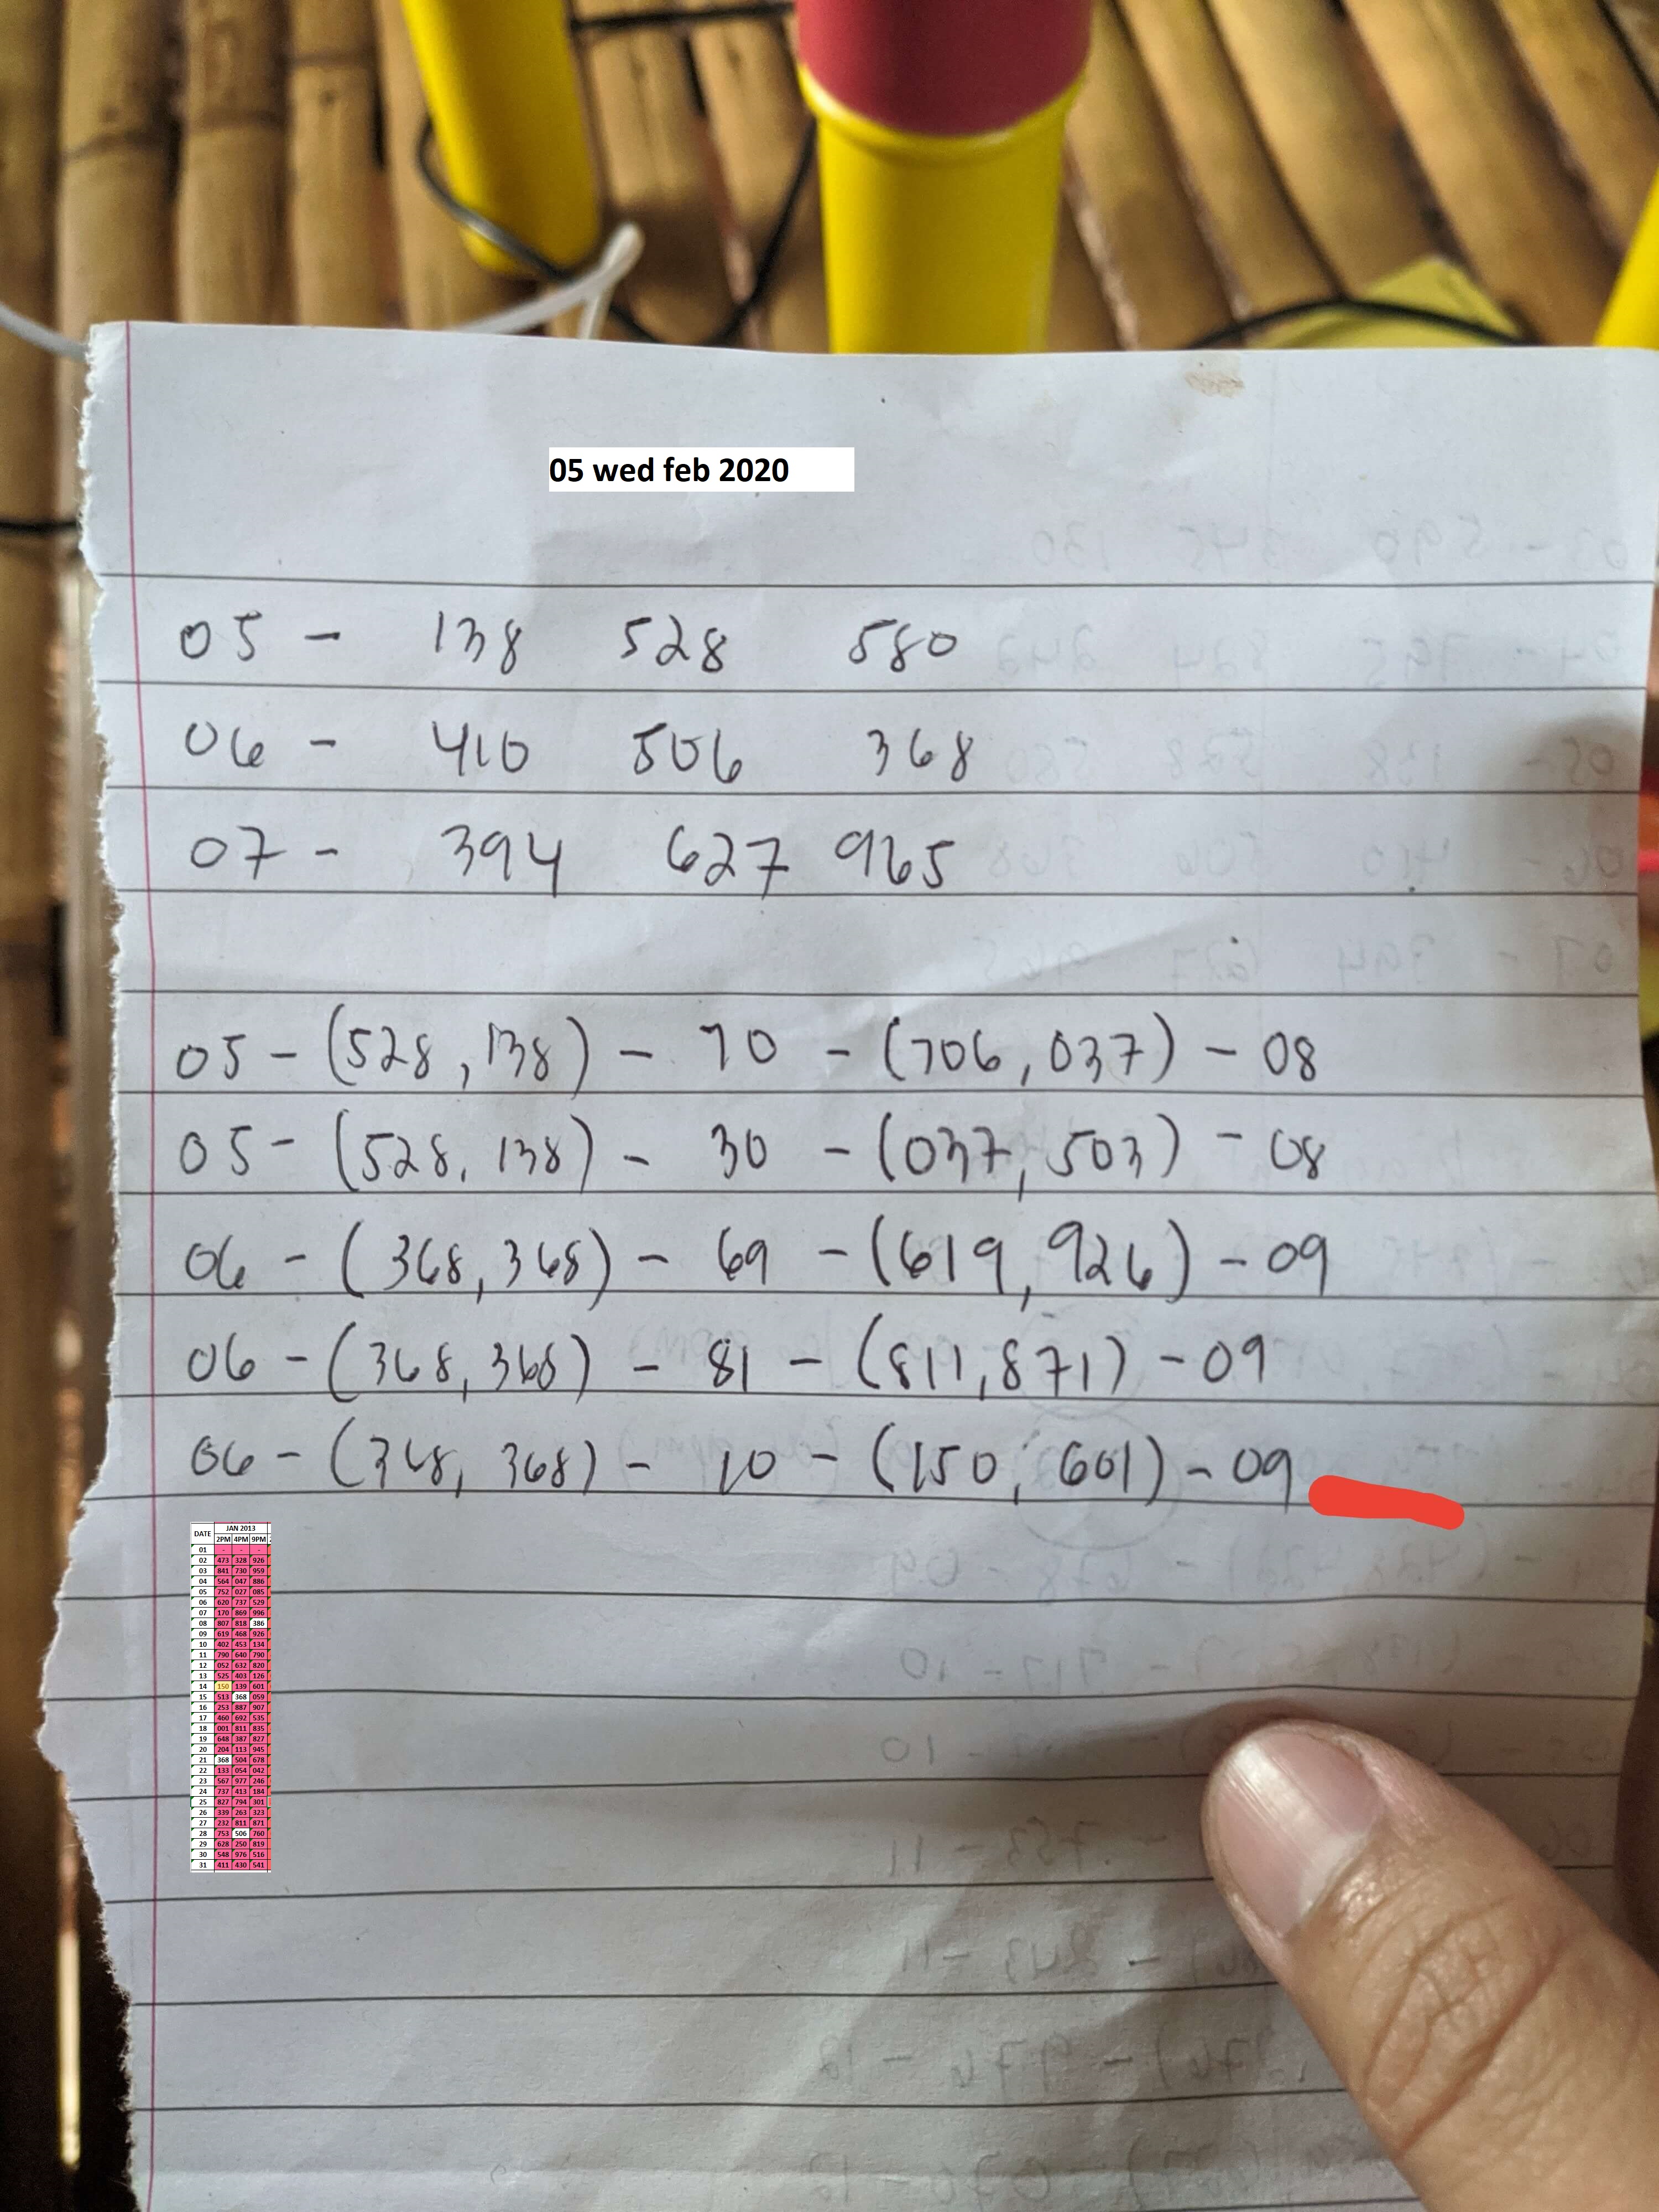 05 wed feb 2020
05 - 138 528 580
06 - 410 506 368
07 - 394 627 965
05 - (528, 138) - 70 - (706, 037) - 08
05 - (528, 138) - 30 - (037, 503) - 08
06 - (368, 368) - 69 - (619, 926) - 09
06 - (368, 368) - 81 - (811, 871) - 09
06 - (368, 368) - 10 - (150, 601) - 09
DATE JAN 2013
2PM 4PM 9PM
01 - - -
02 473 328 926
03 841 730 959
04 564 047 886
05 752 027 085
06 620 737 529
07 170 869 996
08 807 818 386
09 619 468 926
10 402 453 134
11 790 640 790
12 052 632 820
13 525 403 126
14 150 139 601
15 513 368 059
16 253 887 907
17 460 692 535
18 001 811 835
19 648 387 827
20 204 113 945
21 368 504 678
22 133 054 042
23 567 977 246
24 737 413 184
25 827 794 301
26 339 263 323
27 232 811 871
28 753 506 760
29 628 250 819
30 548 976 516
31 411 430 541